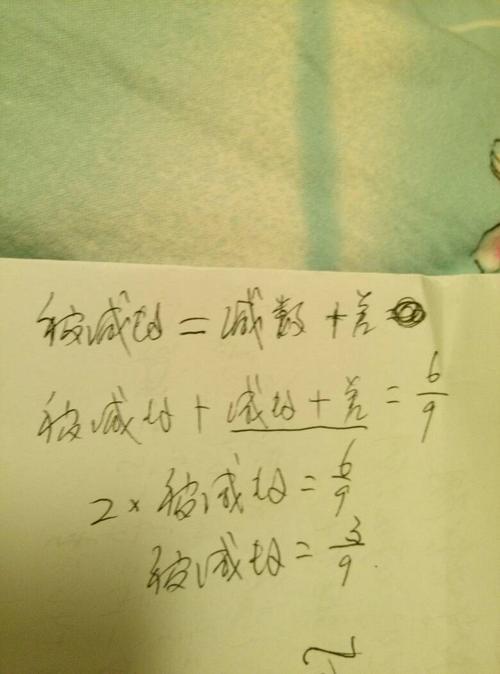 被减数=减数+差
被减数+减数+差=6/9
2×被减数=6/9
被减数=3/9.